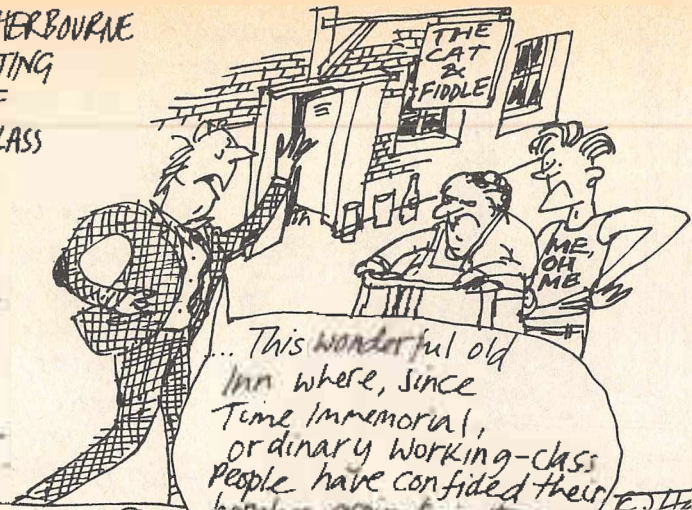 HERBOURNE
TING
LASS
THE
CAT
&
FIDDLE
ME,
OH
ME
... This wonderful old
Inn where, since
Time Immemorial,
ordinary working-class
People have confided their